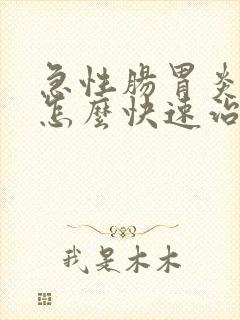 急性腸胃炎
怎麼快速治
我是木木